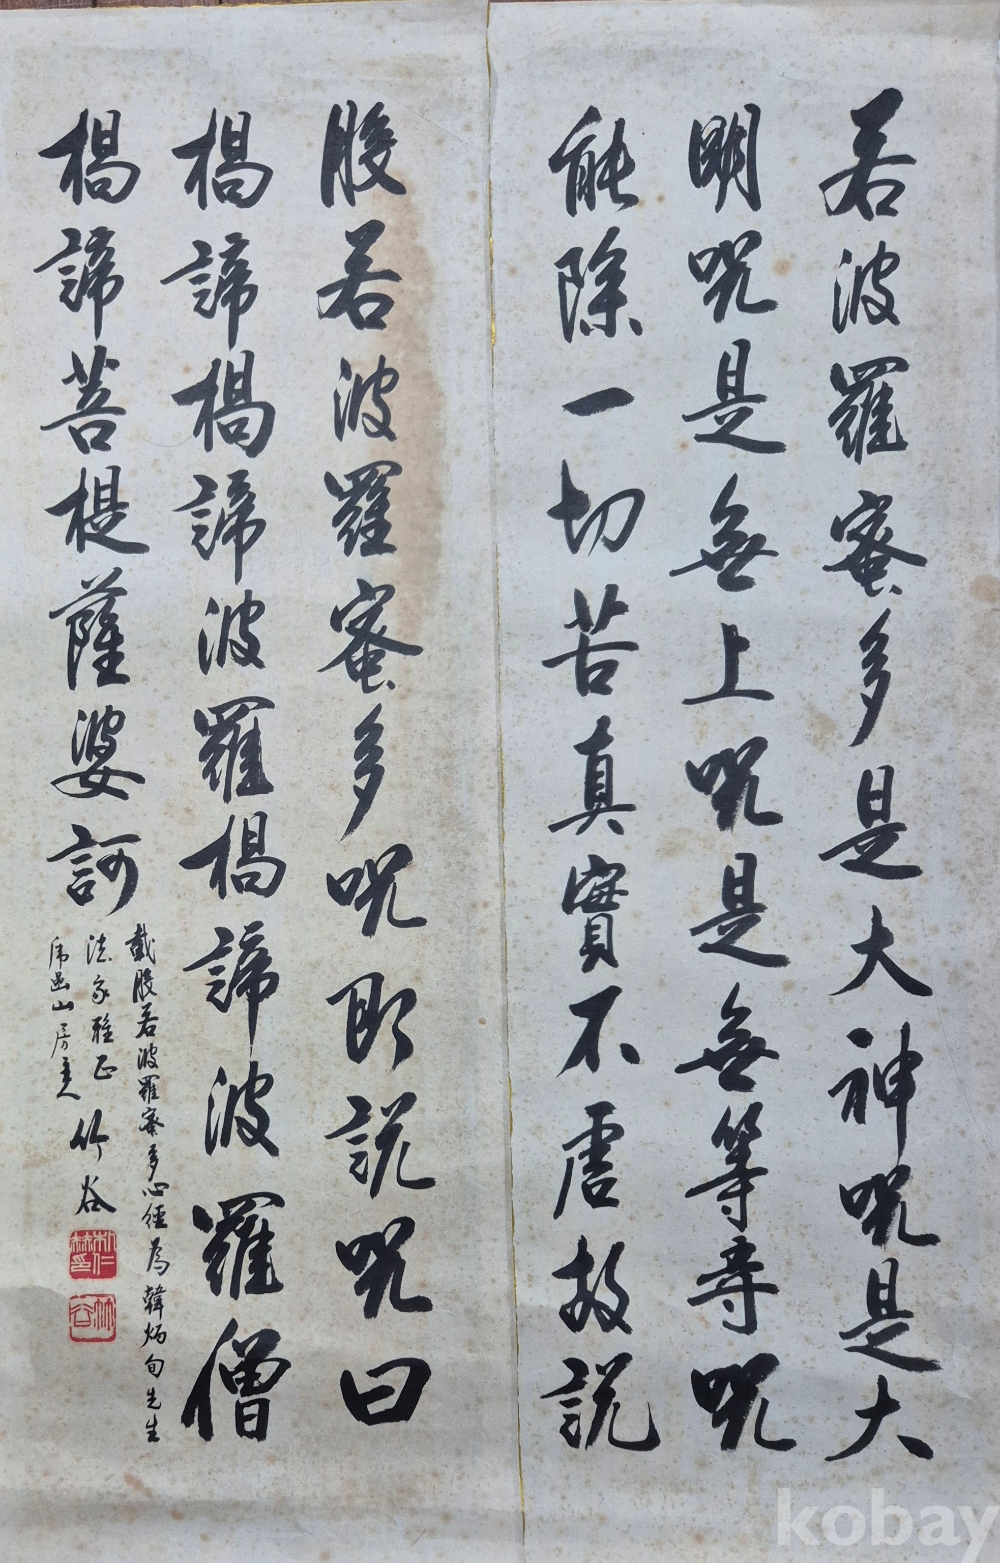 若波羅蜜多是大神呪是大
明呪是無上呪是無等等呪
能除一切苦真實不虛故說
般若波羅蜜多呪即說呪曰
揭諦揭諦波羅揭諦波羅僧
揭諦菩提薩婆訶
截般若波羅蜜多心經為韓炳旬先生
法家雅正
山房主人 竹谷
竹谷
kobay